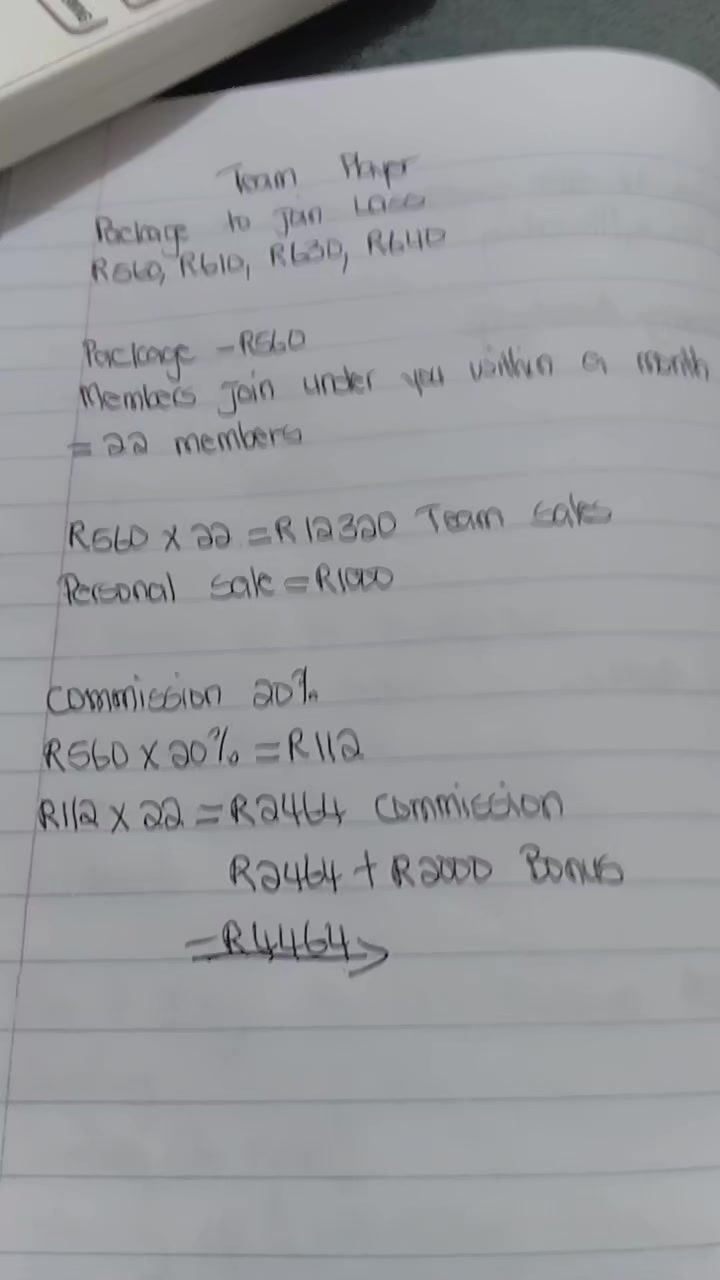 Team Player
Package to join Laso
R560, R610, R630, R640
Package - R560
Members join under you within a month
= 22 members
R560 x 22 = R12320 Team sales
Personal sale = R1000
Commission 20%
R560 x 20% = R112
R112 x 22 = R2464 Commission
R2464 + R2000 Bonus
= R4464